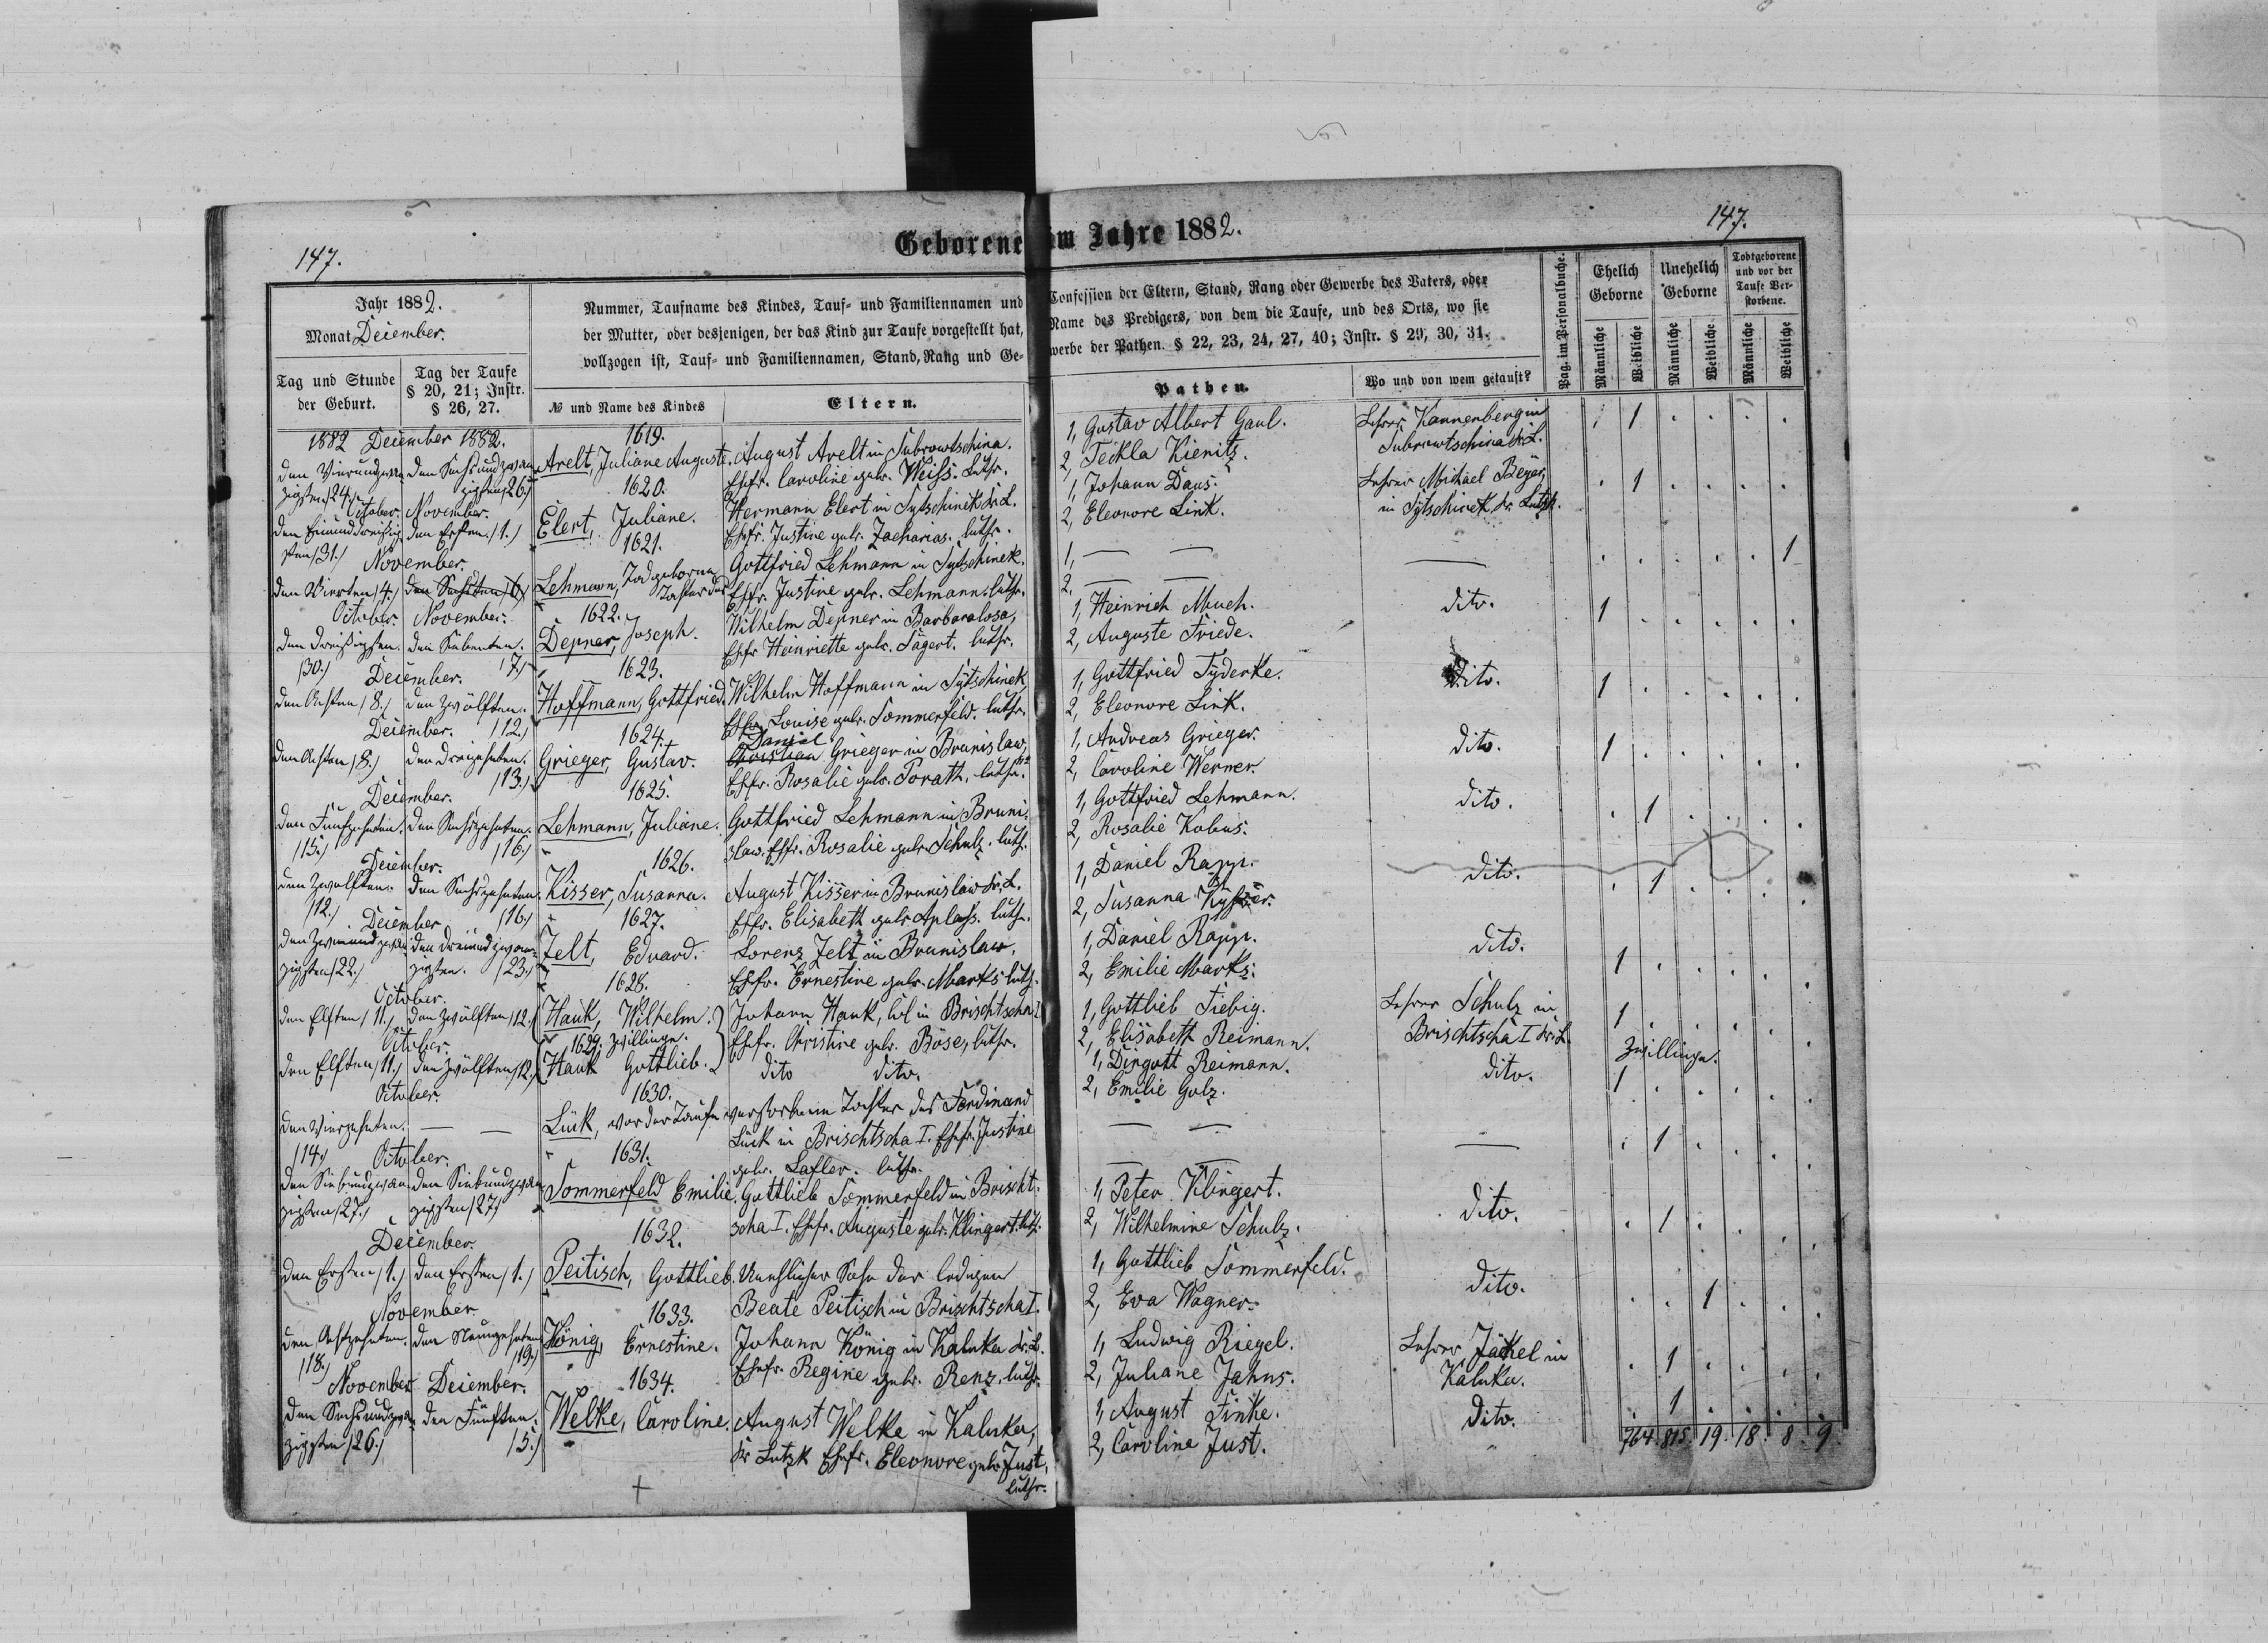 147.
147.
Geborene im Jahre 1882.
Jahr 1882.
Monat December.
Tag und Stunde der Geburt.
Tag der Taufe § 20, 21; Instr. § 26, 27.
Nummer, Taufname des Kindes, Tauf- und Familiennamen und
der Mutter, oder desjenigen, der das Kind zur Taufe vorgestellt hat,
vollzogen ist, Tauf- und Familiennamen, Stand, Rang und Ge-
№ und Name des Kindes
Eltern.
Confession der Eltern, Stand, Rang oder Gewerbe des Vaters, oder
Name des Predigers, von dem die Taufe, und des Orts, wo sie
werbe der Pathen. § 22, 23, 24, 27, 40; Instr. § 29, 30, 31.
Pathen.
Wo und von wem getauft?
Pag. im Personalbuche.
Ehelich Geborne
Unehelich Geborne
Todtgeborene und vor der Taufe Verstorbene.
Männliche
Weibliche
Männliche
Weibliche
Männliche
Weibliche
1882 December 1882.
den Vierundzwanzigsten /24./
den Sechsundzwanzigsten /26./
1619.
Arelt, Juliane Auguste.
August Arelt in Dubrowtschina.
Ehfr. Caroline geb. Weiss. luthr.
1, Gustav Albert Gaul.
2, Teckla Kienitz.
Lehrer Kannenberg in
Dubrowtschina Kr. L.
1
October. November.
den Einunddreißigsten /31./
den Ersten /1./
1620.
Elert, Juliane.
Hermann Elert in Sytschinek Kr. L.
Ehfr. Justine geb. Zacharias. luthr.
1, Johann Daus.
2, Eleonore Link.
Lehrer Michael Beyer,
in Sytschinek Kr. Lutzk.
1
November.
den Vierten /4./
den Sechsten /6./
1621.
Lehmann, Todgeborne
Tochter des
Gottfried Lehmann in Sytschinek.
Ehfr. Justine geb. Lehmann. luthr.
1, — —
2, — —
—
1
October. November.
den Dreißigsten /30./
den Siebenten /7./
1622.
Depner, Joseph.
Wilhelm Depner in Barbaralosa,
Ehfr Heinriette geb. Jägert. luthr.
1, Heinrich Much.
2, Auguste Friede.
dito.
1
December.
den Achten /8./
den Zwölften. /12./
1623.
Hoffmann, Gottfried.
Wilhelm Hoffmann in Sytschinek
Ehfr. Louise geb. Sommerfeld. luthr.
1, Gottfried Tyderke.
2, Eleonore Link.
Dito.
1
December.
den Achten /8./
den Dreizehnten. /13./
1624.
Grieger, Gustav.
Daniel
Christian Grieger in Brunislaw,
Ehfr. Rosalie geb. Porath. luthr.
1, Andreas Grieger.
2, Caroline Werner.
dito.
1
December.
den Fünfzehnten. /15./
den Sechszehnten. /16./
1625.
Lehmann, Juliane.
Gottfried Lehmann in Bruni-
slaw. Ehfr. Rosalie geb. Schulz. luthr.
1, Gottfried Lehmann.
2, Rosalie Kobus.
dito.
1
December.
den Zwölften. /12./
den Sechszehnten. /16./
1626.
Kisser, Susanna.
August Kisser in Brunislaw Kr. L.
Ehfr. Elisabeth geb. Aplass. luthr.
1, Daniel Rapp.
2, Susanna Kysser.
dito.
1
December
den Zweiundzwanzigsten /22./
den Dreiundzwanzigsten. /23./
1627.
Jelt, Eduard.
Lorenz Jelt in Brunislaw.
Ehfr. Ernestine geb. Marks luthr.
1, Daniel Rapp.
2, Emilie Marks.
dito.
1
October.
den Elften /11./
den Zwölften /12./
1628.
Hauk, Wilhelm.
Johann Hauk, Col in Brischtscha I
Ehfr. Christine geb. Böse, luthr.
1, Gottlieb Fiebig.
2, Elisabeth Reimann.
Lehrer Schulz in
Brischtscha I Kr. L.
1
October.
den Elften /11./
den Zwölften /12./
1629. Zwillinge.
Hauk Gottlieb.
dito dito.
1, Dirgott Reimann.
2, Emilie Golz.
dito.
Zwillinge.
1
October.
den Vierzehnten. /14./
— —
1630.
Lück, vor der Taufe verstorbene Tochter des Ferdinand
Lück in Brischtscha I. Ehfr. Justine
geb. Lafler. luthr.
— —
— —
—
1
October.
den Siebenundzwanzigsten /27./
den Siebenundzwanzigsten /27./
1631.
Sommerfeld Emilie.
Gottlieb Sommerfeld in Brischt-
scha I. Ehfr. Auguste geb. Klingert. luthr.
1, Peter Klingert.
2, Wilhelmine Schulz.
dito.
1
December.
den Ersten /1./
den Ersten /1./
1632.
Peitisch, Gottlieb.
Unehlicher Sohn der ledigen
Beate Peitisch in Brischtscha I.
1, Gottlieb Sommerfeld.
2, Eva Wagner.
dito.
1
November
den Achtzehnten. /18./
den Neunzehnten /19./
1633.
König, Ernestine.
Johann König in Kaluka Kr. L.
Ehfr. Regine geb. Renz. luthr.
1, Ludwig Riegel.
2, Juliane Jahns.
Lehrer Jäckel in
Kaluka.
1
November December.
den Sechsundzwanzigsten /26./
den Fünften. /5./
1634.
Welke, Caroline.
August Welke in Kaluka,
Kr Lutzk Ehfr. Eleonore geb Just,
luthr.
1, August Finke.
2, Caroline Just.
dito.
1
764. 815. 19. 18. 8. 9.